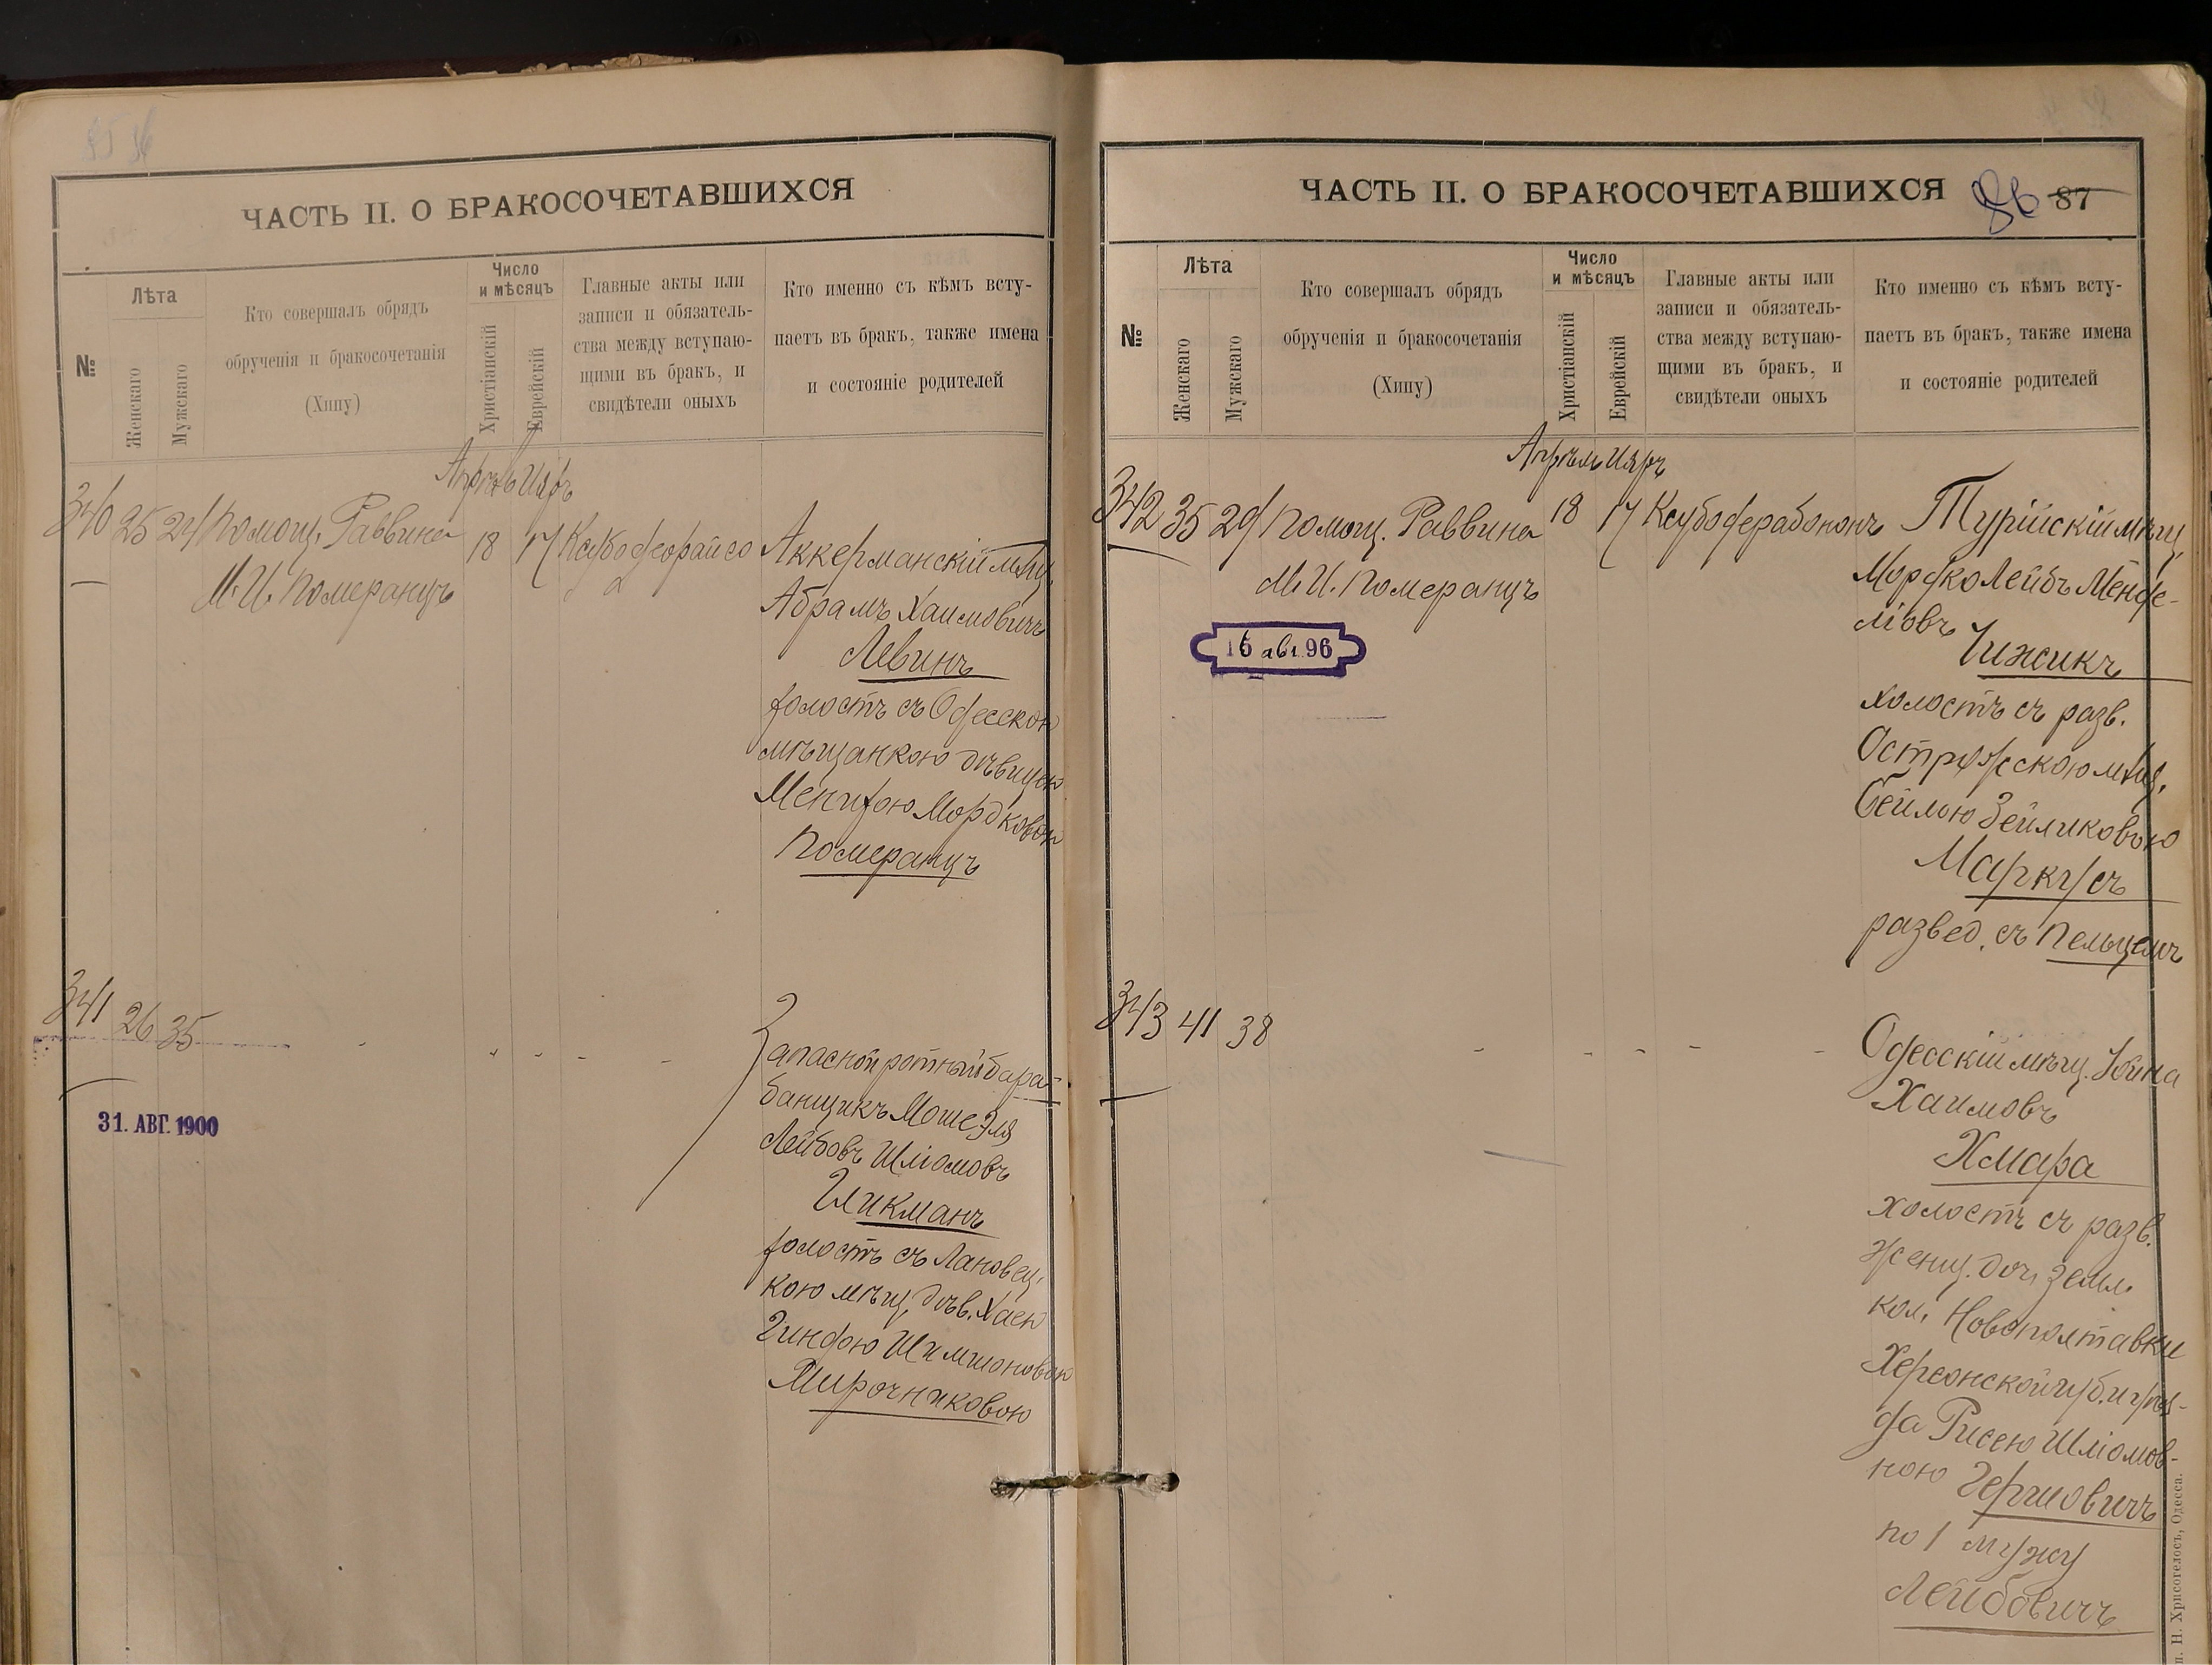 ЧАСТЬ II. О БРАКОСОЧЕТАВШИХСЯ
№
Лѣта
Женскаго
Мужскаго
Кто совершалъ обрядъ
обрученія и бракосочетанія
(Хипу)
Число
и мѣсяцъ
Христіанскій
Еврейскій
Главные акты или
записи и обязатель-
ства между вступаю-
щими въ бракъ, и
свидѣтели оныхъ
Кто именно съ кѣмъ всту-
паетъ въ бракъ, также имена
и состояніе родителей
Апрѣль Ияръ
340 25 24 Помощ. Раввина 18 17
М. И. Померанцъ
Аккерманскій мѣщ.
Абрамъ Хаимовичъ
Левинъ
холостъ съ Одесскою
мѣщанкою дѣвицею
Менихою Мордковою
Померанцъ
341 26 35
31. АВГ. 1900
Запасной ротный бара-
банщикъ Моше Эля
Лейбовъ Шліомовъ
Гликманъ
холостъ съ Лановец-
кою мѣщ. дѣв. Хаею
Гиндою Шимшоновою
Мирочниковою
ЧАСТЬ II. О БРАКОСОЧЕТАВШИХСЯ 86 87
№
Лѣта
Женскаго
Мужскаго
Кто совершалъ обрядъ
обрученія и бракосочетанія
(Хипу)
Число
и мѣсяцъ
Христіанскій
Еврейскій
Главные акты или
записи и обязатель-
ства между вступаю-
щими въ бракъ, и
свидѣтели оныхъ
Кто именно съ кѣмъ всту-
паетъ въ бракъ, также имена
и состояніе родителей
Апрѣль Ияръ
342 35 29 Помощ. Раввина 18 17
М. И. Померанцъ
16 авг. 96
Турійскій мѣщ.
Мордко Лейбъ Менде-
ліовъ
Чижикъ
холостъ съ разв.
Острожскою мѣщ.
Бейлою Зейликовою
Маркусъ
развед. съ Пельцемъ
343 41 38
Одесскій мѣщ. Іойна
Хаимовъ
Хмара
холостъ съ разв.
женщ. доч. земл.
кол. Новополтавки
Херсонской губ. и уѣз-
да Рисею Шліомов-
ною Гершовичъ
по 1 мужу
Лейбовичъ
Н. Хрисогелосъ, Одесса.